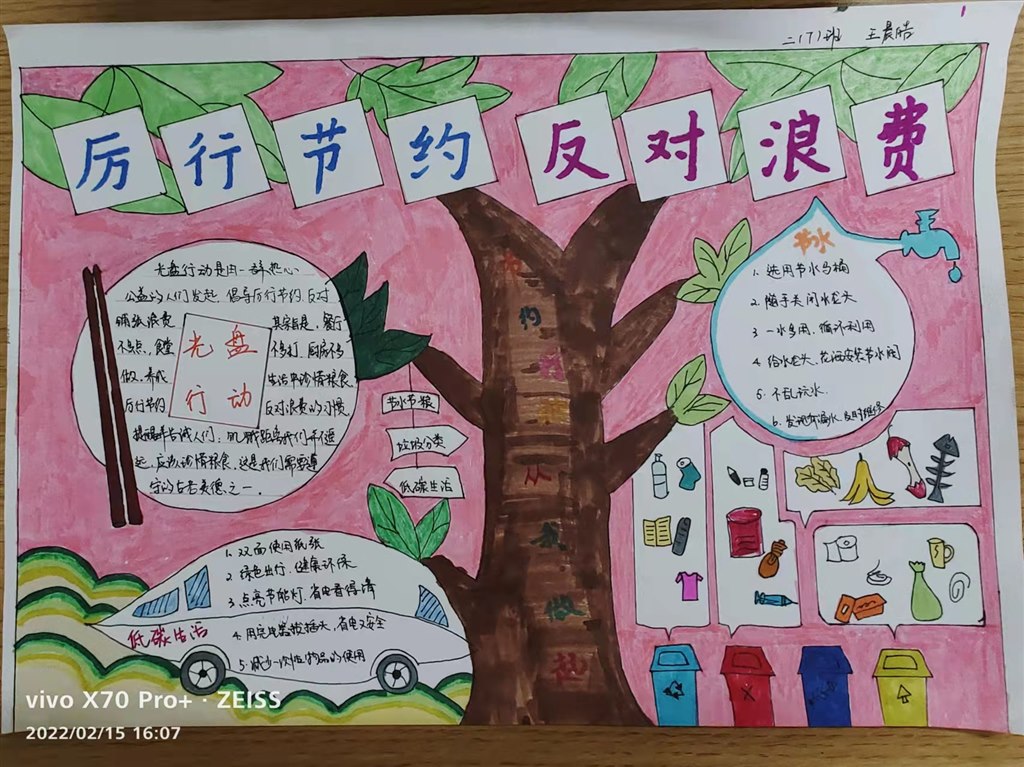 二(7)班 王晨皓
厉行节约 反对浪费
光盘行动是由一群热心
公益的人们发起,倡导厉行节约,反对
铺张浪费 其宗旨是,餐厅
不多点,食堂 不多打,厨房不多
做。养成 生活中珍惜粮食
厉行节约 反对浪费的习惯,
光盘
行动
提醒与告诫人们:饥饿距离我们并不遥
远,应以珍惜粮食,这是我们需要遵
守的古老美德之一。
节水节粮
垃圾分类
低碳生活
节约 从我做起
节水
1. 选用节水马桶
2. 随手关闭水龙头
3 一水多用,循环利用
4 给水龙头、花洒安装节水阀
5 不乱玩水.
6. 发现有漏水,及时维修
1. 双面使用纸张
2 绿色出行,健康环保
3 点亮节能灯,省电看得清
4. 用完电器拔插头,省电又安全
5. 减少一次性物品的使用
低碳生活
vivo X70 Pro+ · ZEISS
2022/02/15 16:07